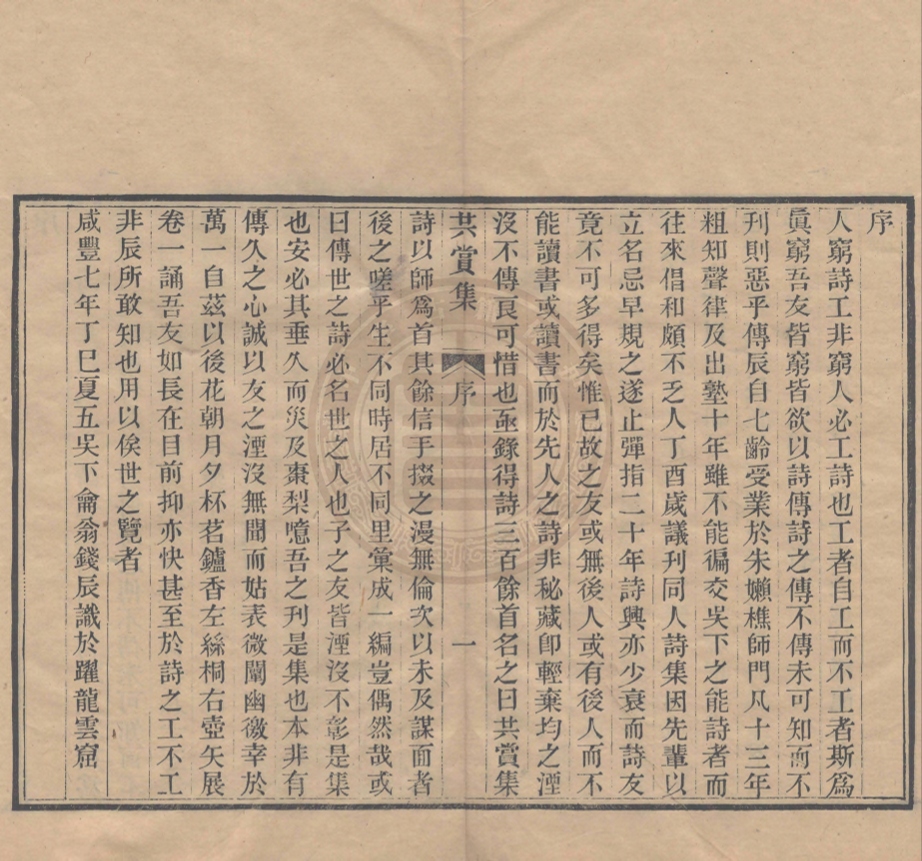 序
人窮詩工非窮人必工詩也工者自工而不工者斯爲
眞窮吾友皆窮皆欲以詩傳詩之傳不傳未可知而不
刋則惡乎傳辰自七齡受業於朱嬾樵師門凡十三年
粗知聲律及出塾十年雖不能徧交吳下之能詩者而
往來倡和頗不乏人丁酉歲議刋同人詩集因先輩以
立名忌早規之遂止彈指二十年詩興亦少衰而詩友
竟不可多得矣惟已故之友或無後人或有後人而不
能讀書或讀書而於先人之詩非秘藏卽輕棄均之湮
沒不傳良可惜也亟錄得詩三百餘首名之曰共賞集
共賞集 序 一
詩以師爲首其餘信手掇之漫無倫次以未及謀面者
後之嗟乎生不同時居不同里彙成一編豈偶然哉或
曰傳世之詩必名世之人也子之友皆湮沒不彰是集
也安必其垂久而災及棗梨噫吾之刋是集也本非有
傳久之心誠以友之湮沒無聞而姑表微闡幽徼幸於
萬一自茲以後花朝月夕杯茗鑪香左絲桐右壺矢展
卷一誦吾友如長在目前抑亦快甚至於詩之工不工
非辰所敢知也用以俟世之覽者
咸豐七年丁巳夏五吳下侖翁錢辰識於躍龍雲窟